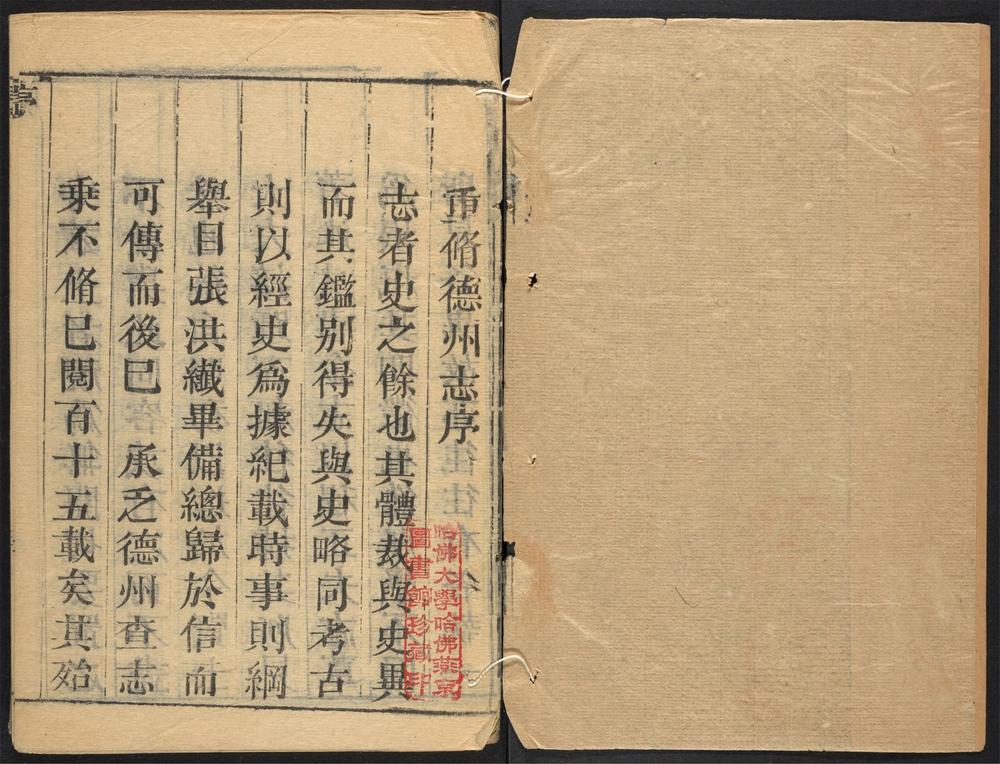 重脩德州志序
志者史之餘也其體裁與史異
而其鑑别得失與史略同考古
則以經史爲據紀載時事則綱
舉目張洪纖畢備總歸於信而
可傳而後已 承乏德州查志
乗不脩已閱百十五載矣其始
哈佛大學哈佛燕京
圖書館珍藏印